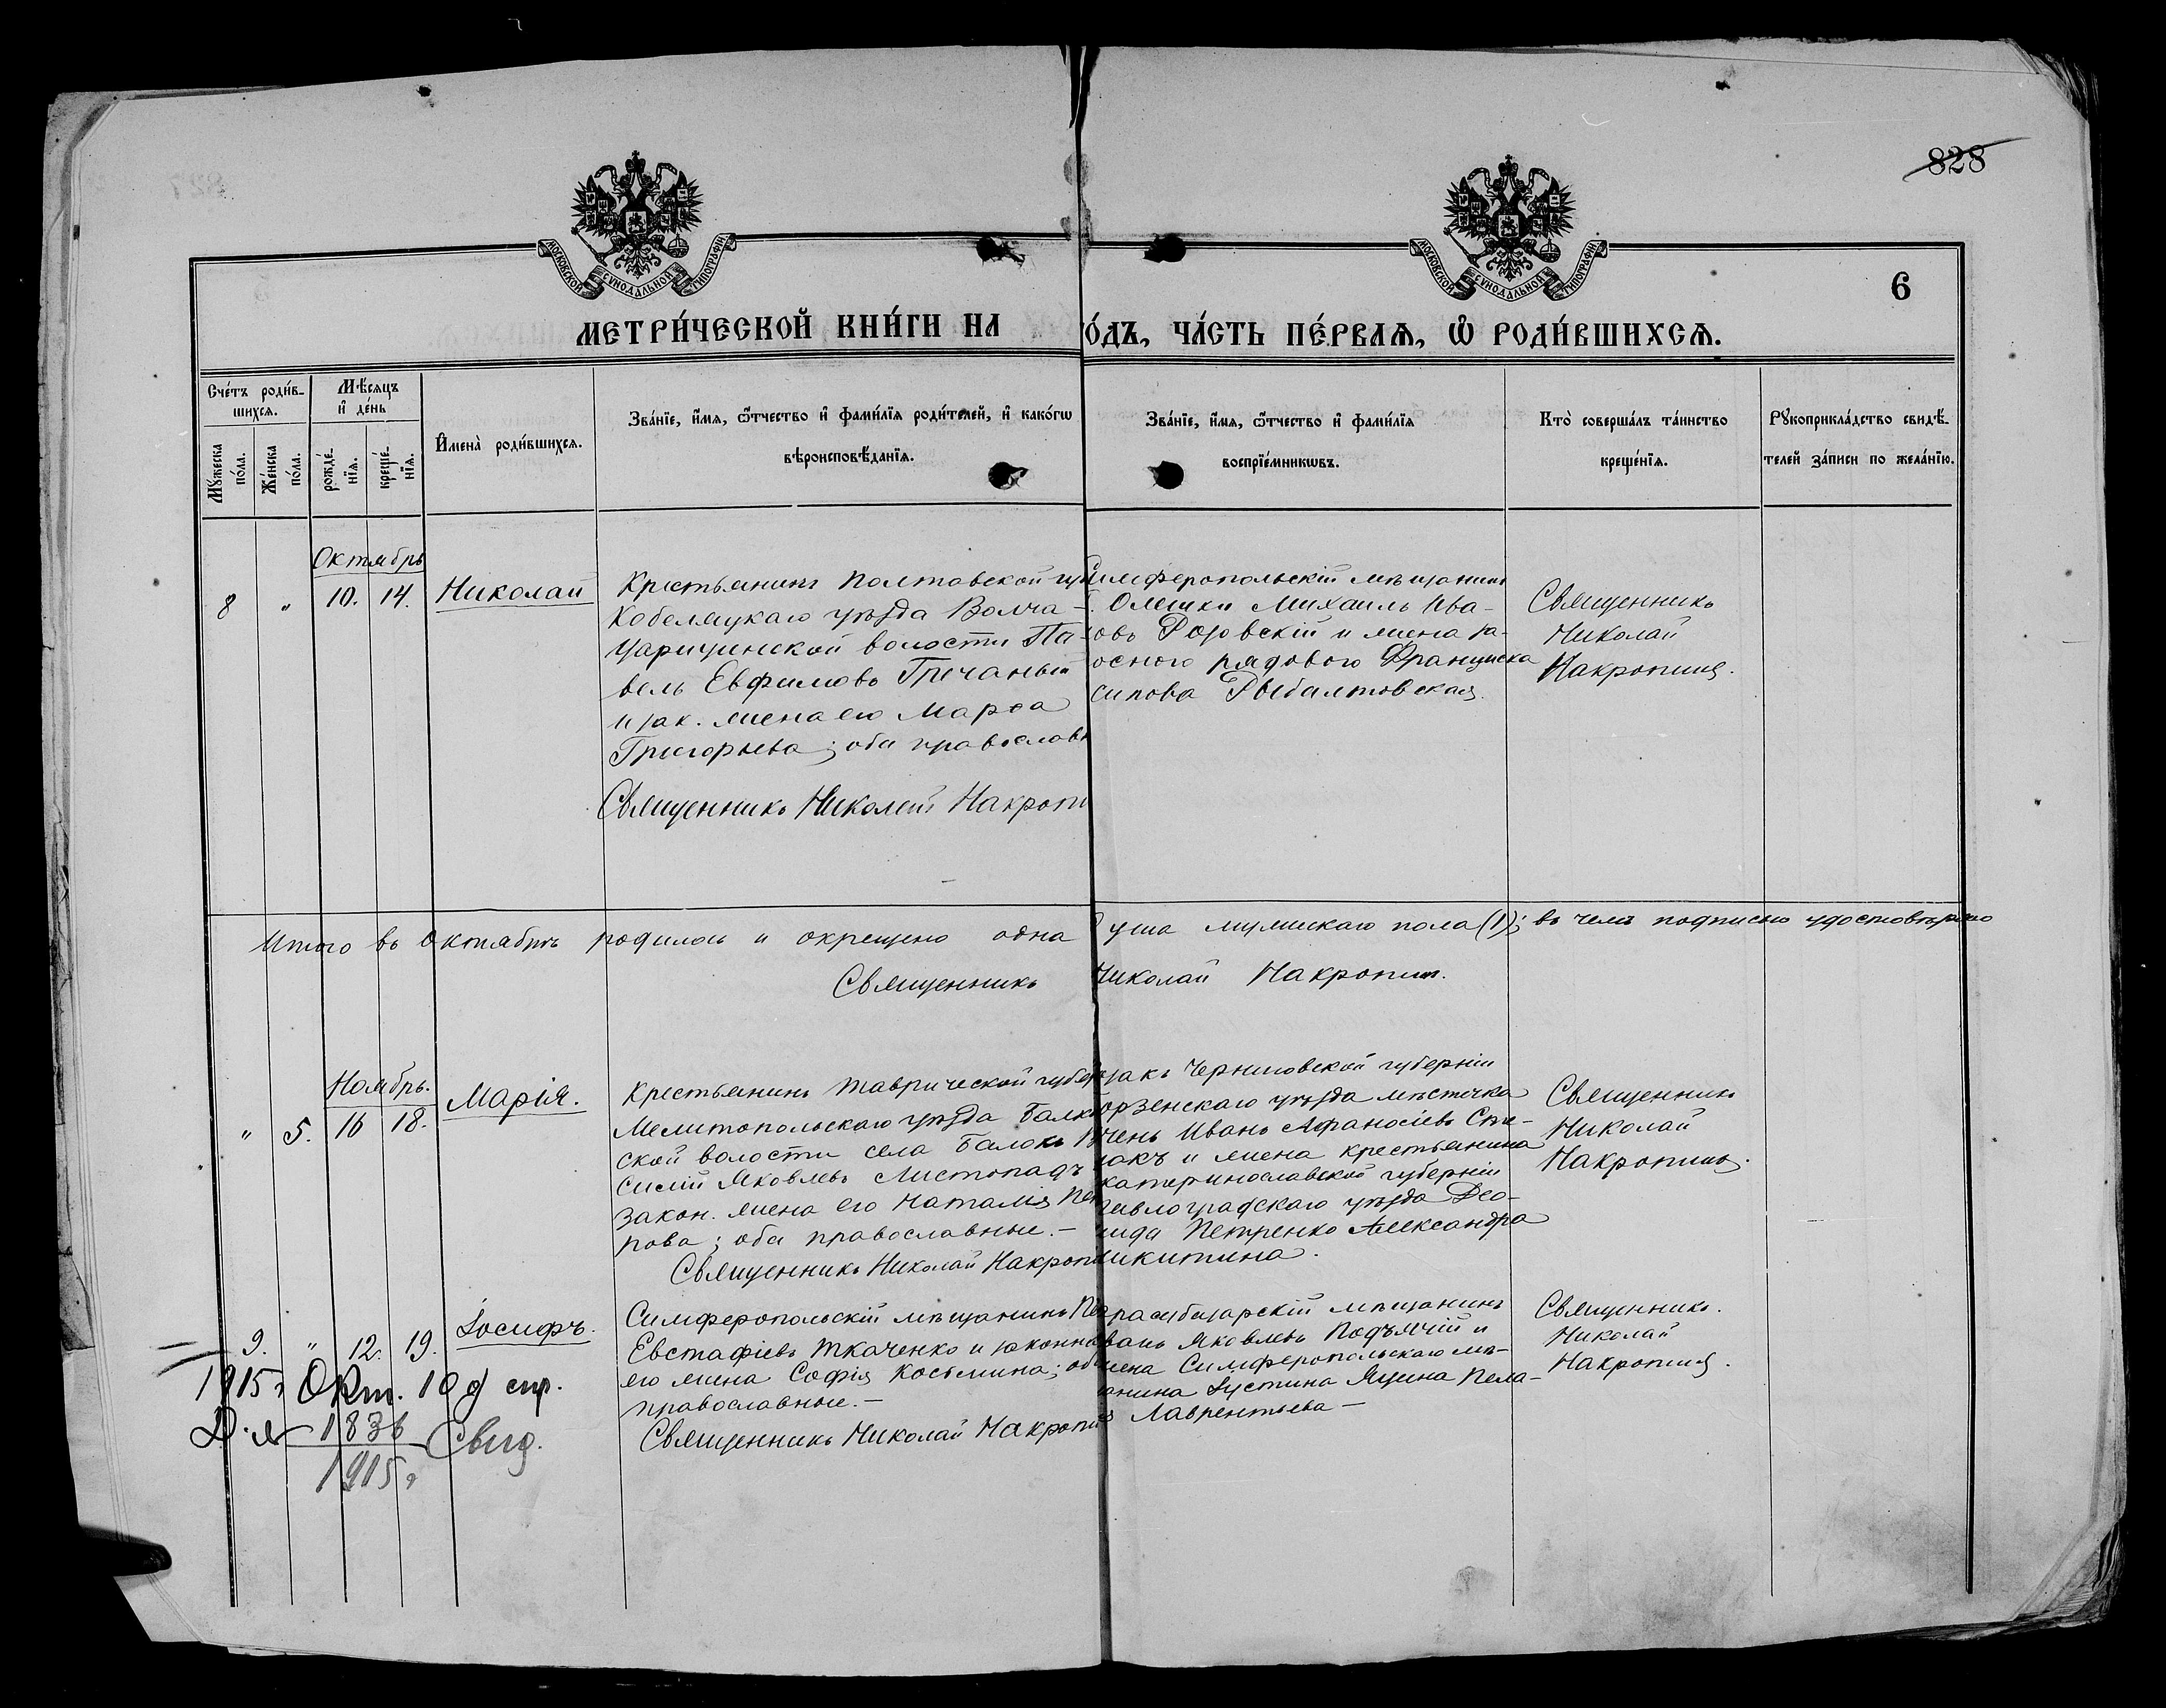 828
МОСКОВСКОЙ СѴНОДАЛЬНОЙ ТИПОГРАФІИ
МОСКОВСКОЙ СѴНОДАЛЬНОЙ ТИПОГРАФІИ
6
МЕТРИ́ЧЕСКОЙ КНИ́ГИ НА
О́ДЪ, ЧА́СТЬ ПЕ́РВАѦ, Ѡ҆ РОДИ́ВШИХСѦ.
Сче́тъ роди́в-
шихся.
Мѣ́сяцъ
и҆ де́нь
Мꙋ́жеска
по́ла.
Же́нска
по́ла.
рожде́-
нїя.
креще́-
нїя.
И҆мена̀ роди́вшихся.
Зва́нїе, и҆́мя, ѻ҆́тчество и҆ фами́лїя роди́телей, и҆ како́гѡ
вѣроисповѣ́данїя.
Зва́нїе, и҆́мя, ѻ҆́тчество и҆ фами́лїя
воспрїе́мникѡвъ.
Кто̀ соверша́лъ та́инство
креще́нїя.
Рꙋкоприкла́дство свидѣ́-
телей за́писи по жела́нїю.
Октябрь
8 " 10. 14. Николай
Крестьянинъ Полтавской гу
Кобелякскаго уѣзда Волча-
Царичинской волости Па-
велъ Евфимовъ Гричаный
и зак. жена его Марѳа
Григорьева; оба православ
Священникъ Николай Накроп
имферопольскій мѣщанинъ
Олешки Михаилъ Ива-
овъ Розовскій и жена за-
аснаго рядового Франциска
сипова Рыбалтовская.
Священникъ
Николай
Накропинъ.
Итого въ Октябрѣ родилось и окрещено одна уша мужескаго пола (1); въ чемъ подписью удостовѣряю
Священникъ Николай Накропин.
Ноябрь.
" 5. 16 18. Марія.
Крестьянинъ Таврической губер
Мелитопольскаго уѣзда Балк
ской волости села Балокъ
силій Яковлевъ Листопадъ
закон. жена его Наталія Пет
рова; оба православные.-
Священникъ Николай Накроп
закъ Черниговской губерніи
орзенскаго уѣзда мѣстечка
чень Иванъ Афанасіевъ Спи-
акъ и жена крестьянина
катеринославской губерніи
авлоградскаго уѣзда Део-
ида Петренко Александра
икитина.
Священникъ
Николай
Накропинъ.
9. " 12. 19. Іосифъ.
Симферопольскій мѣщанинъ Пе
Евстафіевъ Ткаченко и законна
его жена Софія Косьмина; об
православные.-
Священникъ Николай Накропи
расубазарскій мѣщанинъ
ванъ Яковлевъ Подъячій и
жена Симферопольскаго мѣ-
анина Іустина Яцина Пела-
Лаврентьева-
Священникъ.
Николай
Накропинъ.
1915 г. Окт. 10 д
1836 Свид.
1915 г